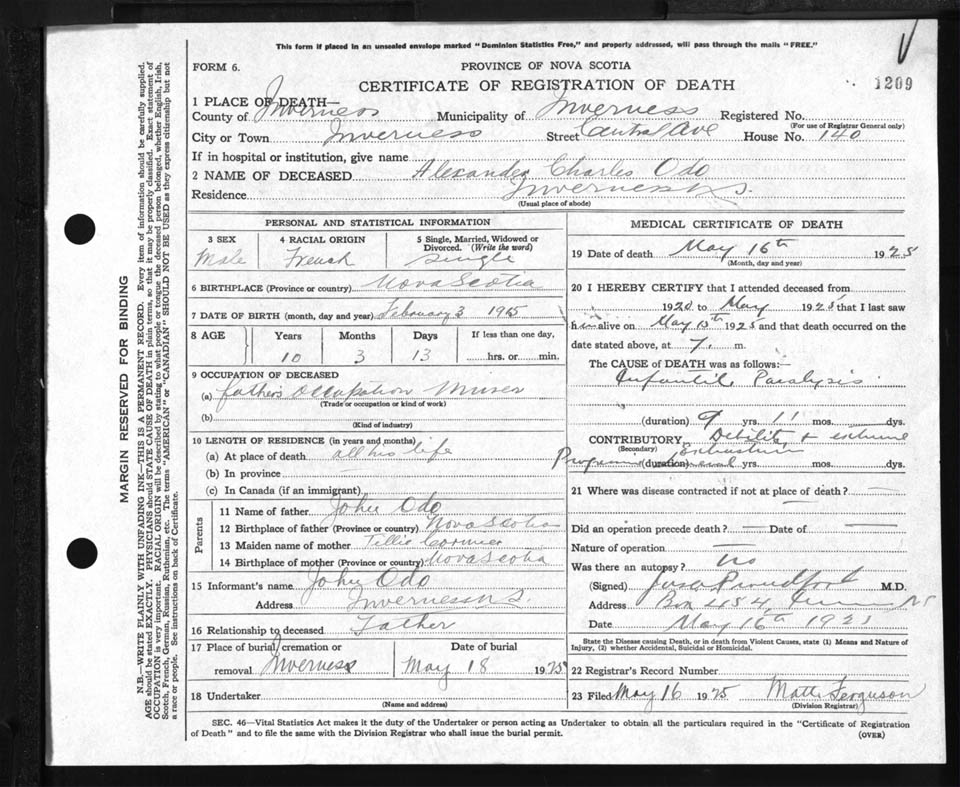 This form if placed in an unsealed envelope marked "Dominion Statistics Free," and properly addressed, will pass through the mails "FREE."
FORM 6.
PROVINCE OF NOVA SCOTIA
CERTIFICATE OF REGISTRATION OF DEATH
1209
1 PLACE OF DEATH—
County of Inverness Municipality of Inverness Registered No.
(For use of Registrar General only)
City or Town Inverness Street Central Ave House No. 140
If in hospital or institution, give name
2 NAME OF DECEASED Alexander Charles Odo
Residence Inverness N.S.
(Usual place of abode)
PERSONAL AND STATISTICAL INFORMATION
3 SEX 4 RACIAL ORIGIN 5 Single, Married, Widowed or Divorced. (Write the word)
Male French Single
6 BIRTHPLACE (Province or country) Nova Scotia
7 DATE OF BIRTH (month, day and year) February 3 1915
8 AGE Years Months Days If less than one day,
10 3 13 hrs. or min.
9 OCCUPATION OF DECEASED
(a) father's Occupation Miner
(Trade or occupation or kind of work)
(b)
(Kind of industry)
10 LENGTH OF RESIDENCE (in years and months)
(a) At place of death all his life
(b) In province
(c) In Canada (if an immigrant)
Parents
11 Name of father John Odo
12 Birthplace of father (Province or country) Nova Scotia
13 Maiden name of mother Tillie Cormier
14 Birthplace of mother (Province or country) Nova Scotia
15 Informant's name John Odo
Address Inverness N.S.
16 Relationship to deceased Father
17 Place of burial, cremation or Date of burial
removal Inverness May 18 1925
18 Undertaker
(Name and address)
MEDICAL CERTIFICATE OF DEATH
19 Date of death May 16th 1925
(Month, day and year)
20 I HEREBY CERTIFY that I attended deceased from
1920 to May 1925 that I last saw
him alive on May 15th 1925 and that death occurred on the
date stated above, at 7. m.
The CAUSE of DEATH was as follows:—
Infantile Paralysis
(duration) 9 yrs. 11 mos. dys.
CONTRIBUTORY Debility & extreme
(Secondary) Exhaustion
(duration) several yrs. mos. dys.
21 Where was disease contracted if not at place of death?
Did an operation precede death? Date of
Nature of operation
Was there an autopsy? no
(Signed) Proudfoot M.D.
Address Box 454, NS
Date May 16th 1925
State the Disease causing Death, or in death from Violent Causes, state (1) Means and Nature of
Injury, (2) whether Accidental, Suicidal or Homicidal.
22 Registrar's Record Number
23 Filed May 16 1925 Matt. Ferguson
(Division Registrar)
SEC. 46—Vital Statistics Act makes it the duty of the Undertaker or person acting as Undertaker to obtain all the particulars required in the "Certificate of Registration
of Death" and to file the same with the Division Registrar who shall issue the burial permit.
(OVER)
MARGIN RESERVED FOR BINDING
N.B.—WRITE PLAINLY WITH UNFADING INK—THIS IS A PERMANENT RECORD. Every item of information should be carefully supplied.
AGE should be stated EXACTLY. PHYSICIANS should STATE CAUSE OF DEATH in plain terms, so that it may be properly classified. Exact statement of
OCCUPATION is very important. RACIAL ORIGIN will be described by stating to what people or tongue the deceased person belonged, whether English, Irish,
Scotch, French, German, Russian, Ruthenian, etc. The terms "AMERICAN" or "CANADIAN" SHOULD NOT BE USED as they express citizenship but not
a race or people. See instructions on back of Certificate.